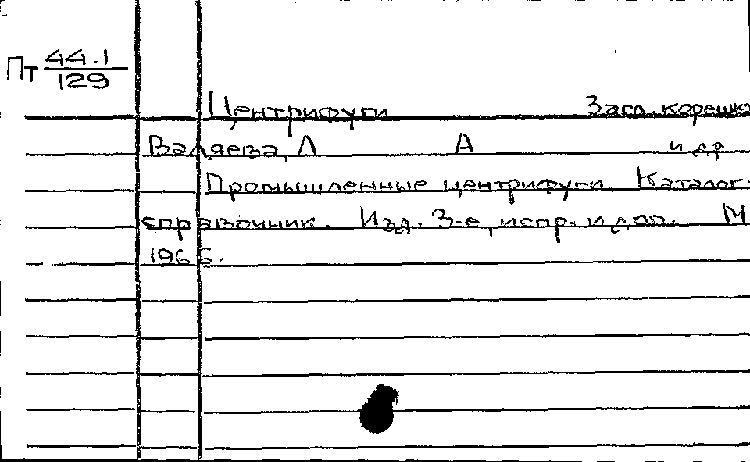 Пт 44.1
129
Центрифуги Загл. корешка
Валяева, Л А и др
Промышленные центрифуги. Каталог-
справочник. Изд. 3-е, испр. и доп. М
1966.